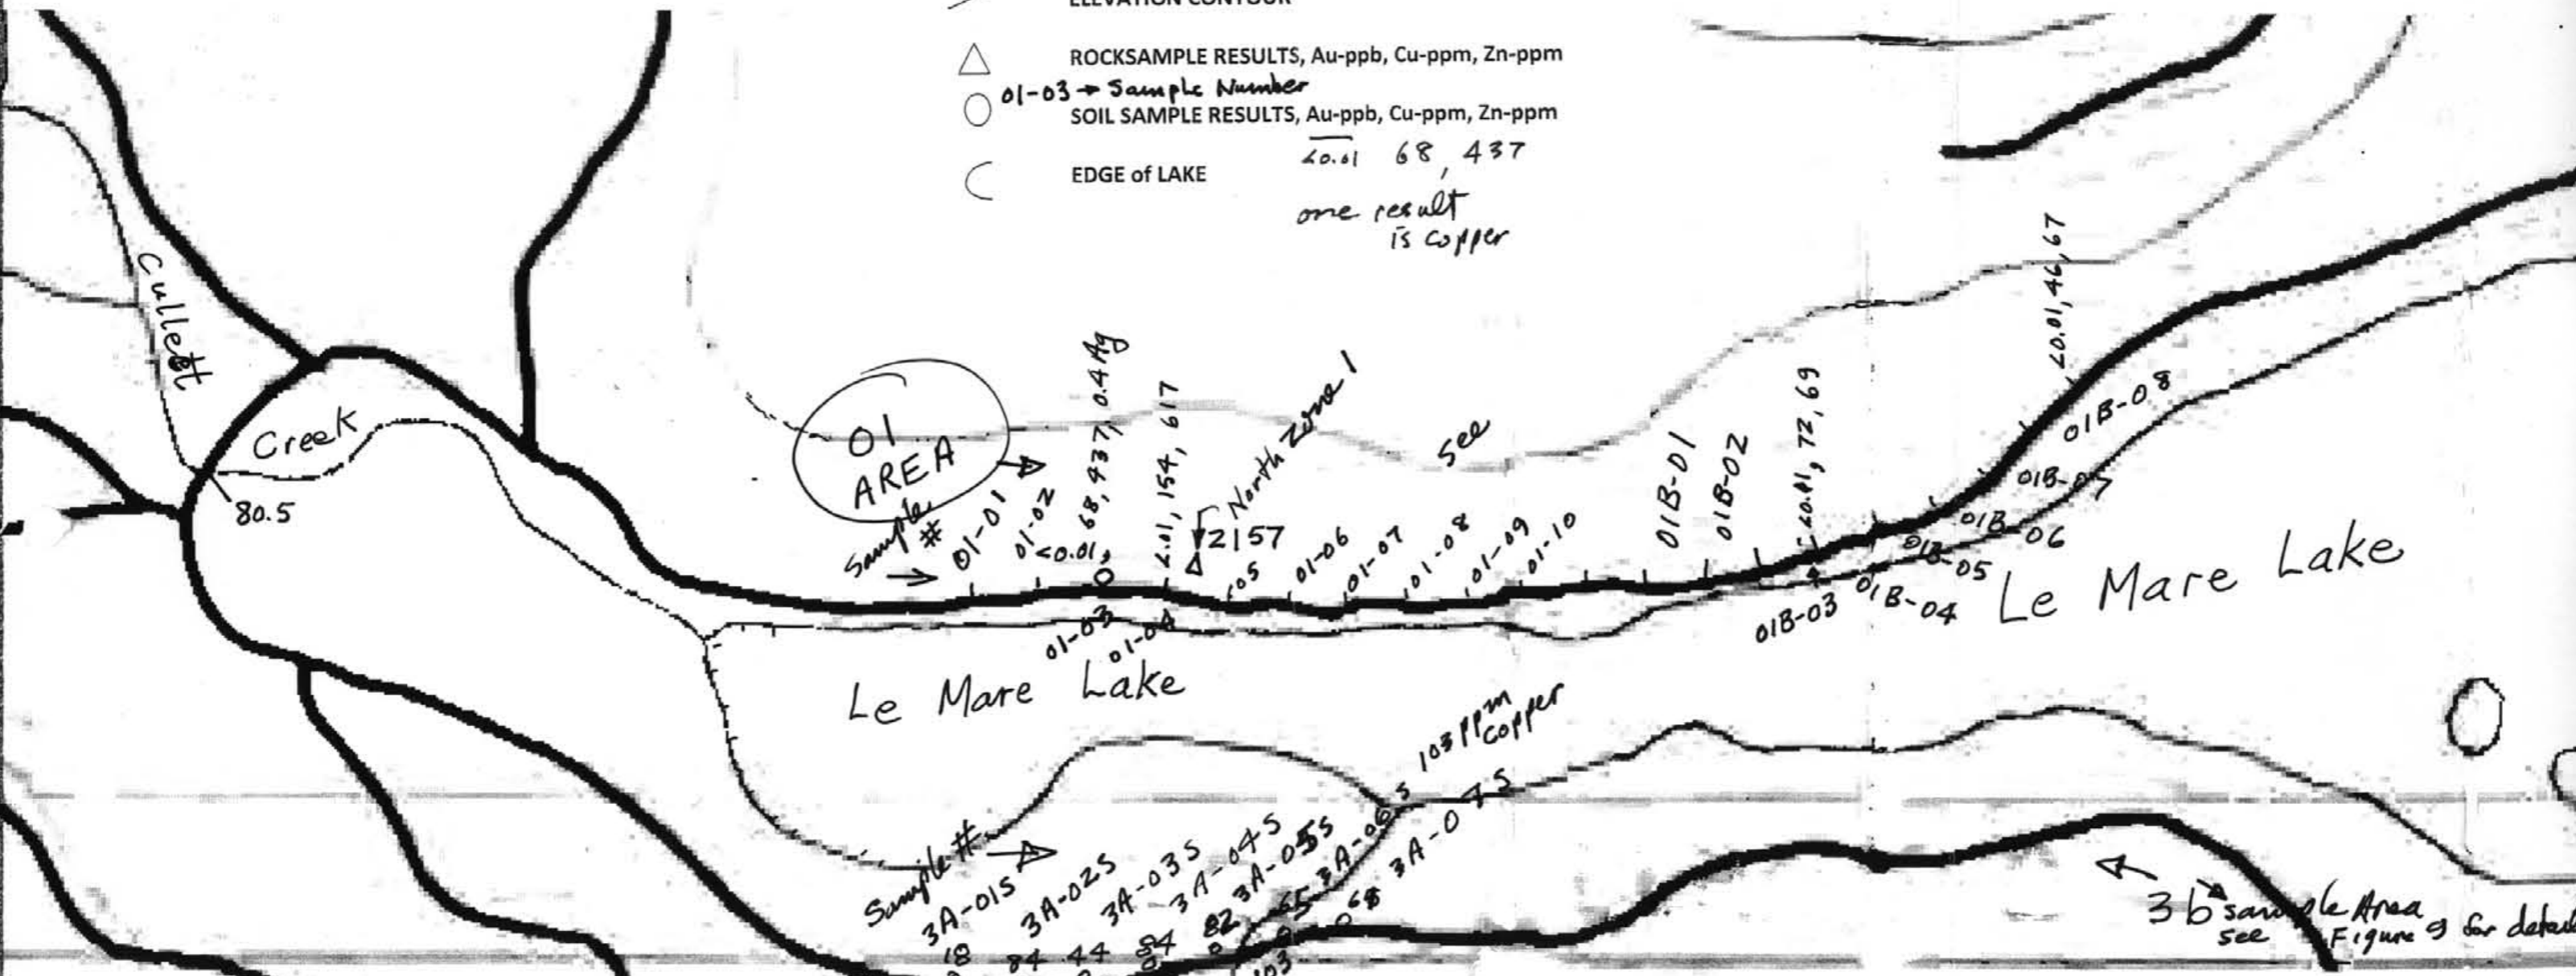 ELEVATION CONTOUR
ROCKSAMPLE RESULTS, Au-ppb, Cu-ppm, Zn-ppm
01-03 → Sample Number
SOIL SAMPLE RESULTS, Au-ppb, Cu-ppm, Zn-ppm
<0.01 68, 437
EDGE of LAKE
one result
is copper
Cullet
Creek
80.5
01
AREA
Sample
#
01-01
01-02
<0.01, 68, 437, 0.4 Ag
<.01, 154, 617
North Zone 1
2157
05
01-06
01-07
01-08
01-09
01-10
See
01B-01
01B-02
<0.01, 72, 69
<0.01, 46, 67
01B-08
01B-07
01B-06
01B-05
01B-04
01B-03
01-03
01-04
Le Mare Lake
Le Mare Lake
103 ppm
copper
Sample #
3A-01S
3A-02S
3A-03S
3A-04S
3A-05S
3A-06S
3A-07S
18
84
44
84
82
65
68
103
3b sample Area
see Figure 9 for detail